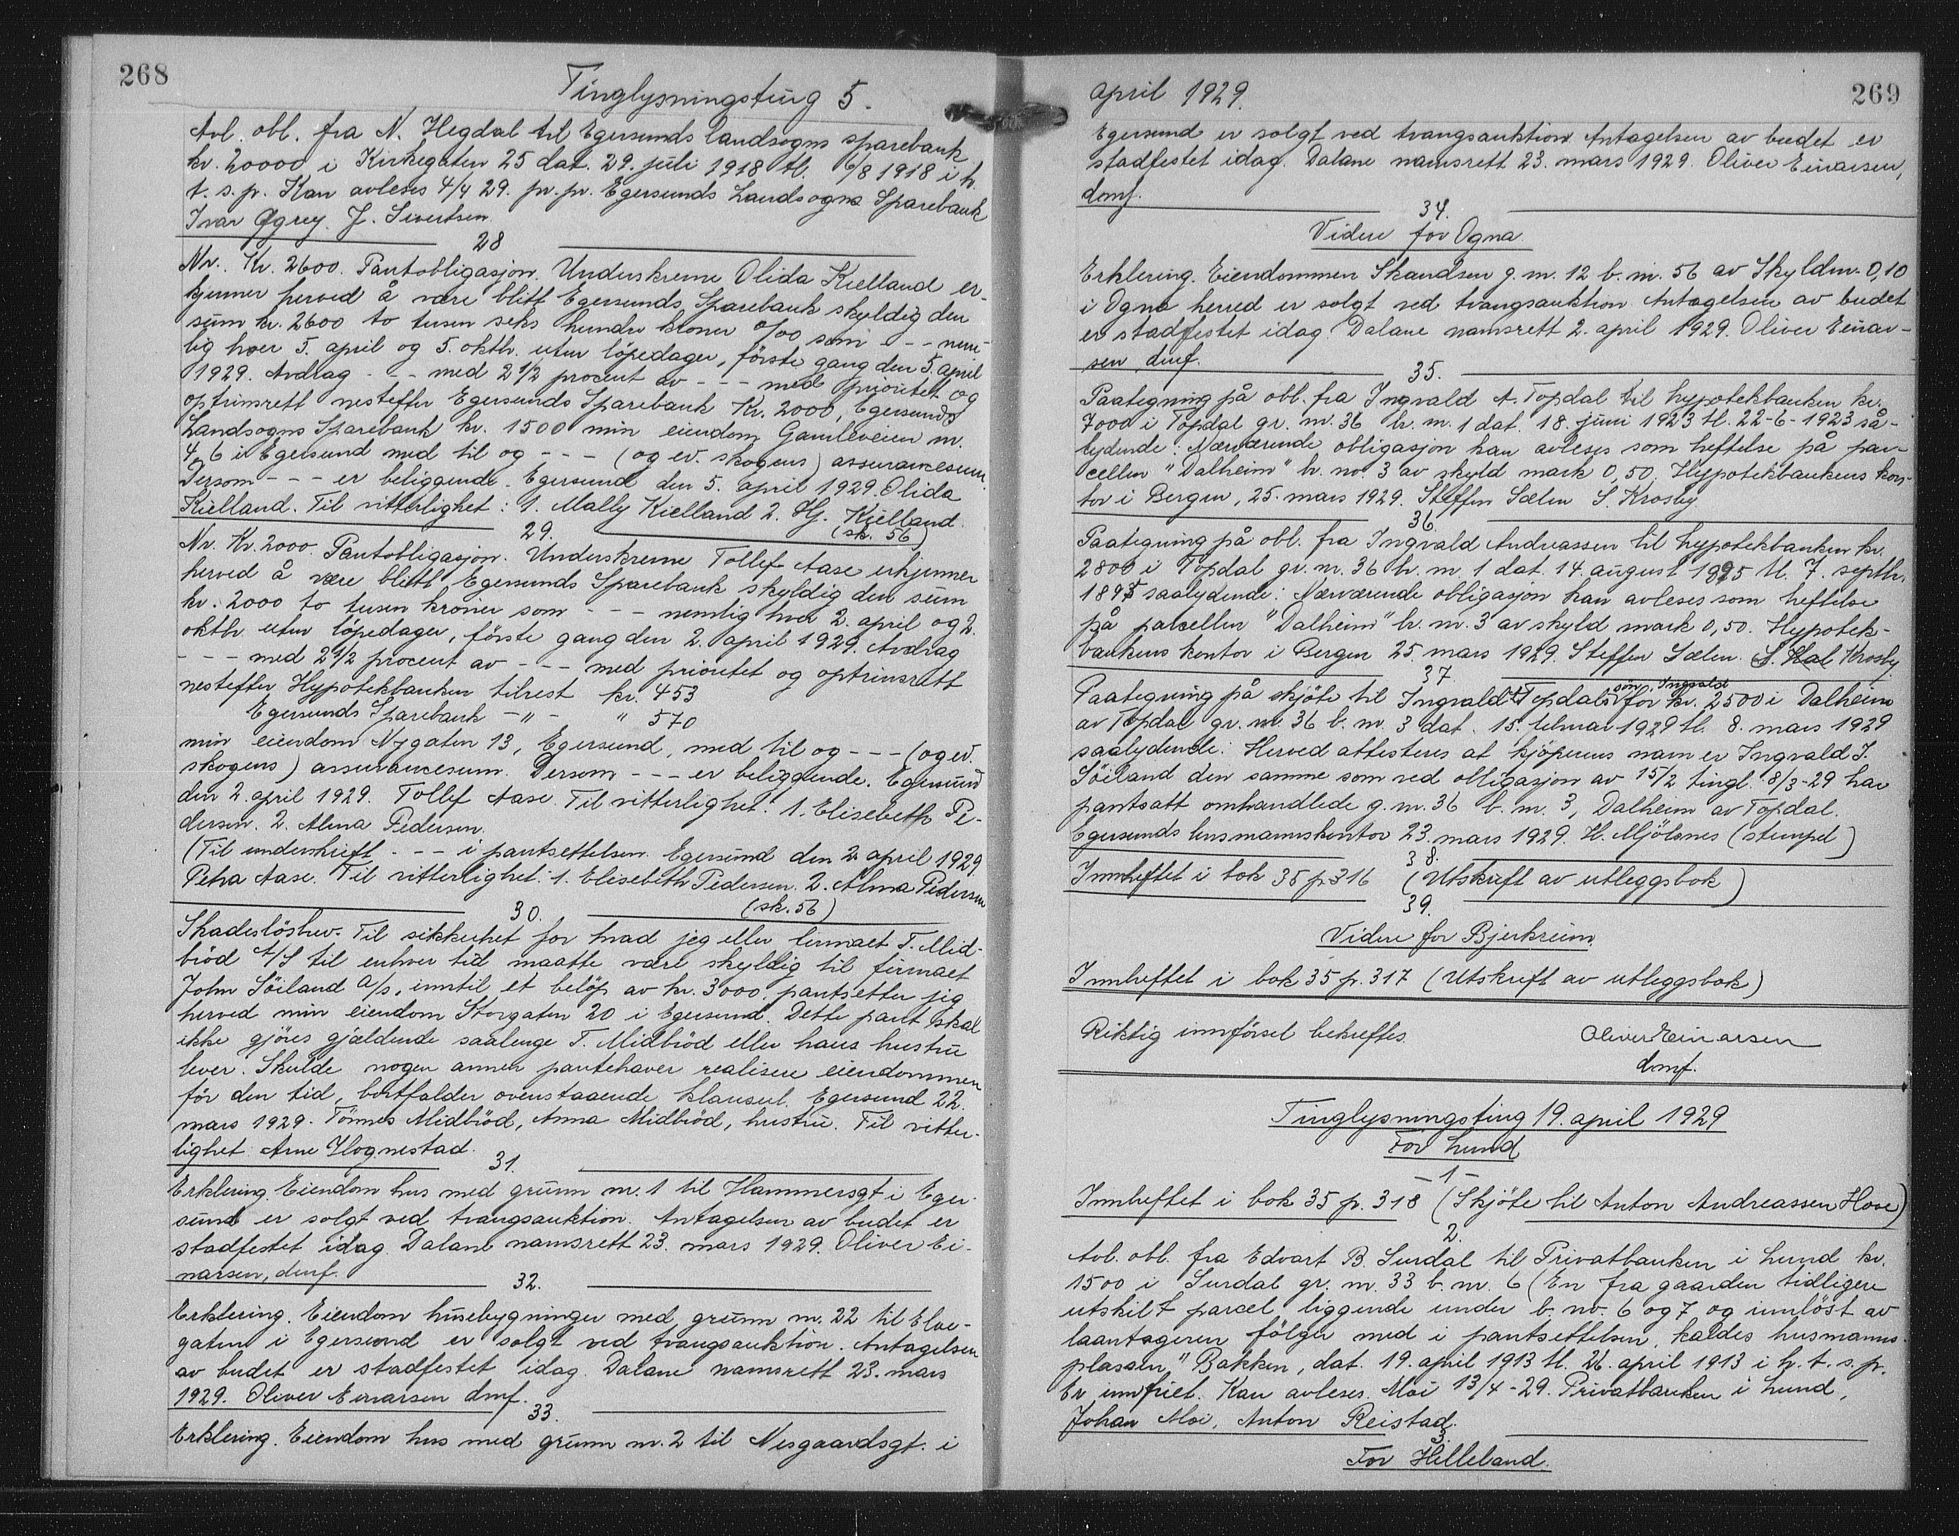 268
Tinglysningsting 5.
Avl. obl. fra N. Hegdal til Egersunds landsogns sparebank
kr. 20000 i Kirkegaten 25 dat. 29. juli 1918 tl. 6/8 1918 i h.
t. s. p. Kan avleses 4/4 29. pr. pr. Egersunds Landsogns Sparebank
Ivar Øgrey. J. Sivertsen.
28
Nr. Kr. 2600. Pantobligasjon. Underskrevne Olida Kielland er-
kjenner herved å være blitt Egersunds Sparebank skyldig den
sum kr. 2600 to tusen seks hundre kroner 0/00 som - - - nem-
lig hver 5. april og 5. oktb. uten löpedager, förste gang den 5. april
1929. Avdrag - - - med 2 1/2 procent av - - - med prioritet og
optrinsrett nesteffer Egersunds Sparebank Kr. 2000, Egersunds
Landsogns Sparebank kr. 1500 min eiendom Gamleveien nr.
4, 6 i Egersund med til og - - - (og ev. skogens) assurancesum.
Dersom - - - er beliggende. Egersund den 5. april 1929. Olida
Kielland. Til vitterlighet: 1. Mally Kielland 2. Hj. Kielland.
(sk. 56)
29.
Nr. Kr. 2000. Pantobligasjon. Underskrevne Tollef Aase erkjenner
herved å være blitt Egersunds Sparebank skyldig den sum
kr. 2000 to tusen kroner som - - - nemlig hver 2. april og 2.
oktb. uten löpedager, förste gang den 2. april 1929. Avdrag
- - - med 2 1/2 procent av - - - med prioritet og optrinsrett
nesteffer Hypotekbanken tilrest kr. 453
Egersunds Sparebank - " - " 570
min eiendom Nygaten 13, Egersund, med til og - - - (og ev.
skogens) assurancesum. Dersom - - - er beliggende. Egersund
den 2. april 1929. Tollef Aase. Til vitterlighet: 1. Elisebeth Pe-
dersen. 2. Alma Pedersen.
(Til underskrift - - - i pantsettelsen. Egersund den 2. april 1929
Petra Aase. Til vitterlighet: 1. Elisebeth Pedersen. 2. Alma Pedersen
(sk. 56)
30.
Skadeslösbrev. Til sikkerhet for hvad jeg eller firmaet T. Mid-
bröd A/S til enhver tid maatte være skyldig til firmaet
John Söiland A/S, inntil et belöp av kr. 3000. pantsetter jeg
herved min eiendom Storgaten 20 i Egersund. Dette pant skal
ikke gjöres gjældende saalenge T. Midbröd eller hans hustru
lever. Skulde nogen annen pantehaver realisere eiendommen
för den tid, bortfalder ovenstaaende klausul. Egersund 22.
mars 1929. Tönnes Midbröd, Anna Midbröd, hustru. Til vitter-
lighet: Arne Hognestad.
31.
Erklering. Eiendom hus med grunn nr. 1 til Hammersgt. i Eger-
sund er solgt ved tvangsauktion. Antagelsen av budet er
stadfestet idag. Dalane namsrett 23. mars 1929. Oliver Ei-
narsen, dmf.
32.
Erklering. Eiendom husebygninger med grunn nr. 22 til Elve-
gaten i Egersund er solgt ved tvangsauktion. Antagelsen
av budet er stadfestet idag. Dalane namsrett 23. mars
1929. Oliver Einarsen dmf.
33.
Erklering. Eiendom hus med grunn nr. 2 til Nesgaardsgt. i
april 1929.
269
Egersund er solgt ved tvangsauktion Antagelsen av budet er
stadfestet idag. Dalane namsrett 23. mars 1929. Oliver Einarsen,
dmf.
34.
Videre for Ogna
Erklering. Eiendommen Skandsen g. nr. 12 b. nr. 56 av Skyldm. 0,10
i Ogna herred er solgt ved tvangsauktion Antagelsen av budet
er stadfestet idag. Dalane namsrett 2. april 1929. Oliver Einar-
sen, dmf.
35.
Paategning på obl. fra Ingvald A. Topdal til hypotekbanken kr.
7000 i Topdal gr. nr. 36 br. nr. 1 dat. 18. juni 1923 tl. 22-6-1923 så-
lydende: Nærværende obligasjon kan avleses som heftelse på par-
cellen "Dalheim" br. no. 3 av skyld mark 0,50. Hypotekbankens kon-
tor i Bergen, 25. mars 1929. Steffen Sælen S. Krosby
36.
Paategning på obl. fra Ingvald Andreassen til hypotekbanken kr.
2800 i Topdal gr. nr. 36 br. nr. 1 dat. 14. august 1895 tl. 7. septbr.
1895 saalydende: Nærværende obligasjon kan avleses som heftelse
på palcellen "Dalheim" br. nr. 3 av skyld mark 0,50. Hypotek-
bankens kontor i Bergen 25. mars 1929. Steffen Sælen. S. Krosby.
37
Paategning på skjöte til Ingvald Topdals sön, Ingvald for kr. 2500 i Dalheim
av Topdal gr. nr. 36 b. nr. 3 dat. 15. februar 1929 tl. 8. mars 1929
saalydende: Herved attesteres at kjöperens navn er Ingvald I.
Söiland den samme som ved obligasjon av 15/2 tingl. 8/3-29 har
pantsatt omhandlede g. nr. 36 b. nr. 3, Dalheim av Topdal.
Egersunds lensmannskontor 23. mars 1929. H. Mjölsnes (stempel)
38.
Innheftet i bok 35 p. 316 (Utskrift av utleggsbok)
39.
Videre for Bjerkreim
Innheftet i bok 35 p. 317 (Utskrift av utleggsbok)
Riktig innförsel bekreftes.
Oliver Einarsen
dmf.
Tinglysningsting 19. april 1929
For Lund
- 1 -
Innheftet i bok 35 p. 318 (Skjöte til Anton Andreassen Hove)
2.
Avl. obl. fra Edvart B. Surdal til Privatbanken i Lund kr.
1500 i Surdal gr. nr. 33 b. nr. 6 (En fra gaarden tidligere
utskilt parcel liggende under b. no. 6 og 7 og innlöst av
laantageren fölger med i pantsettelsen, kaldes husmanns-
plassen "Bakken, dat. 19. april 1913 tl. 26. april 1913 i h. t. s. p.
Er innfriet. Kan avleses. Moi 13/4-29. Privatbanken i Lund,
Johan Moi, Anton Reistad.
3.
For Helleland.